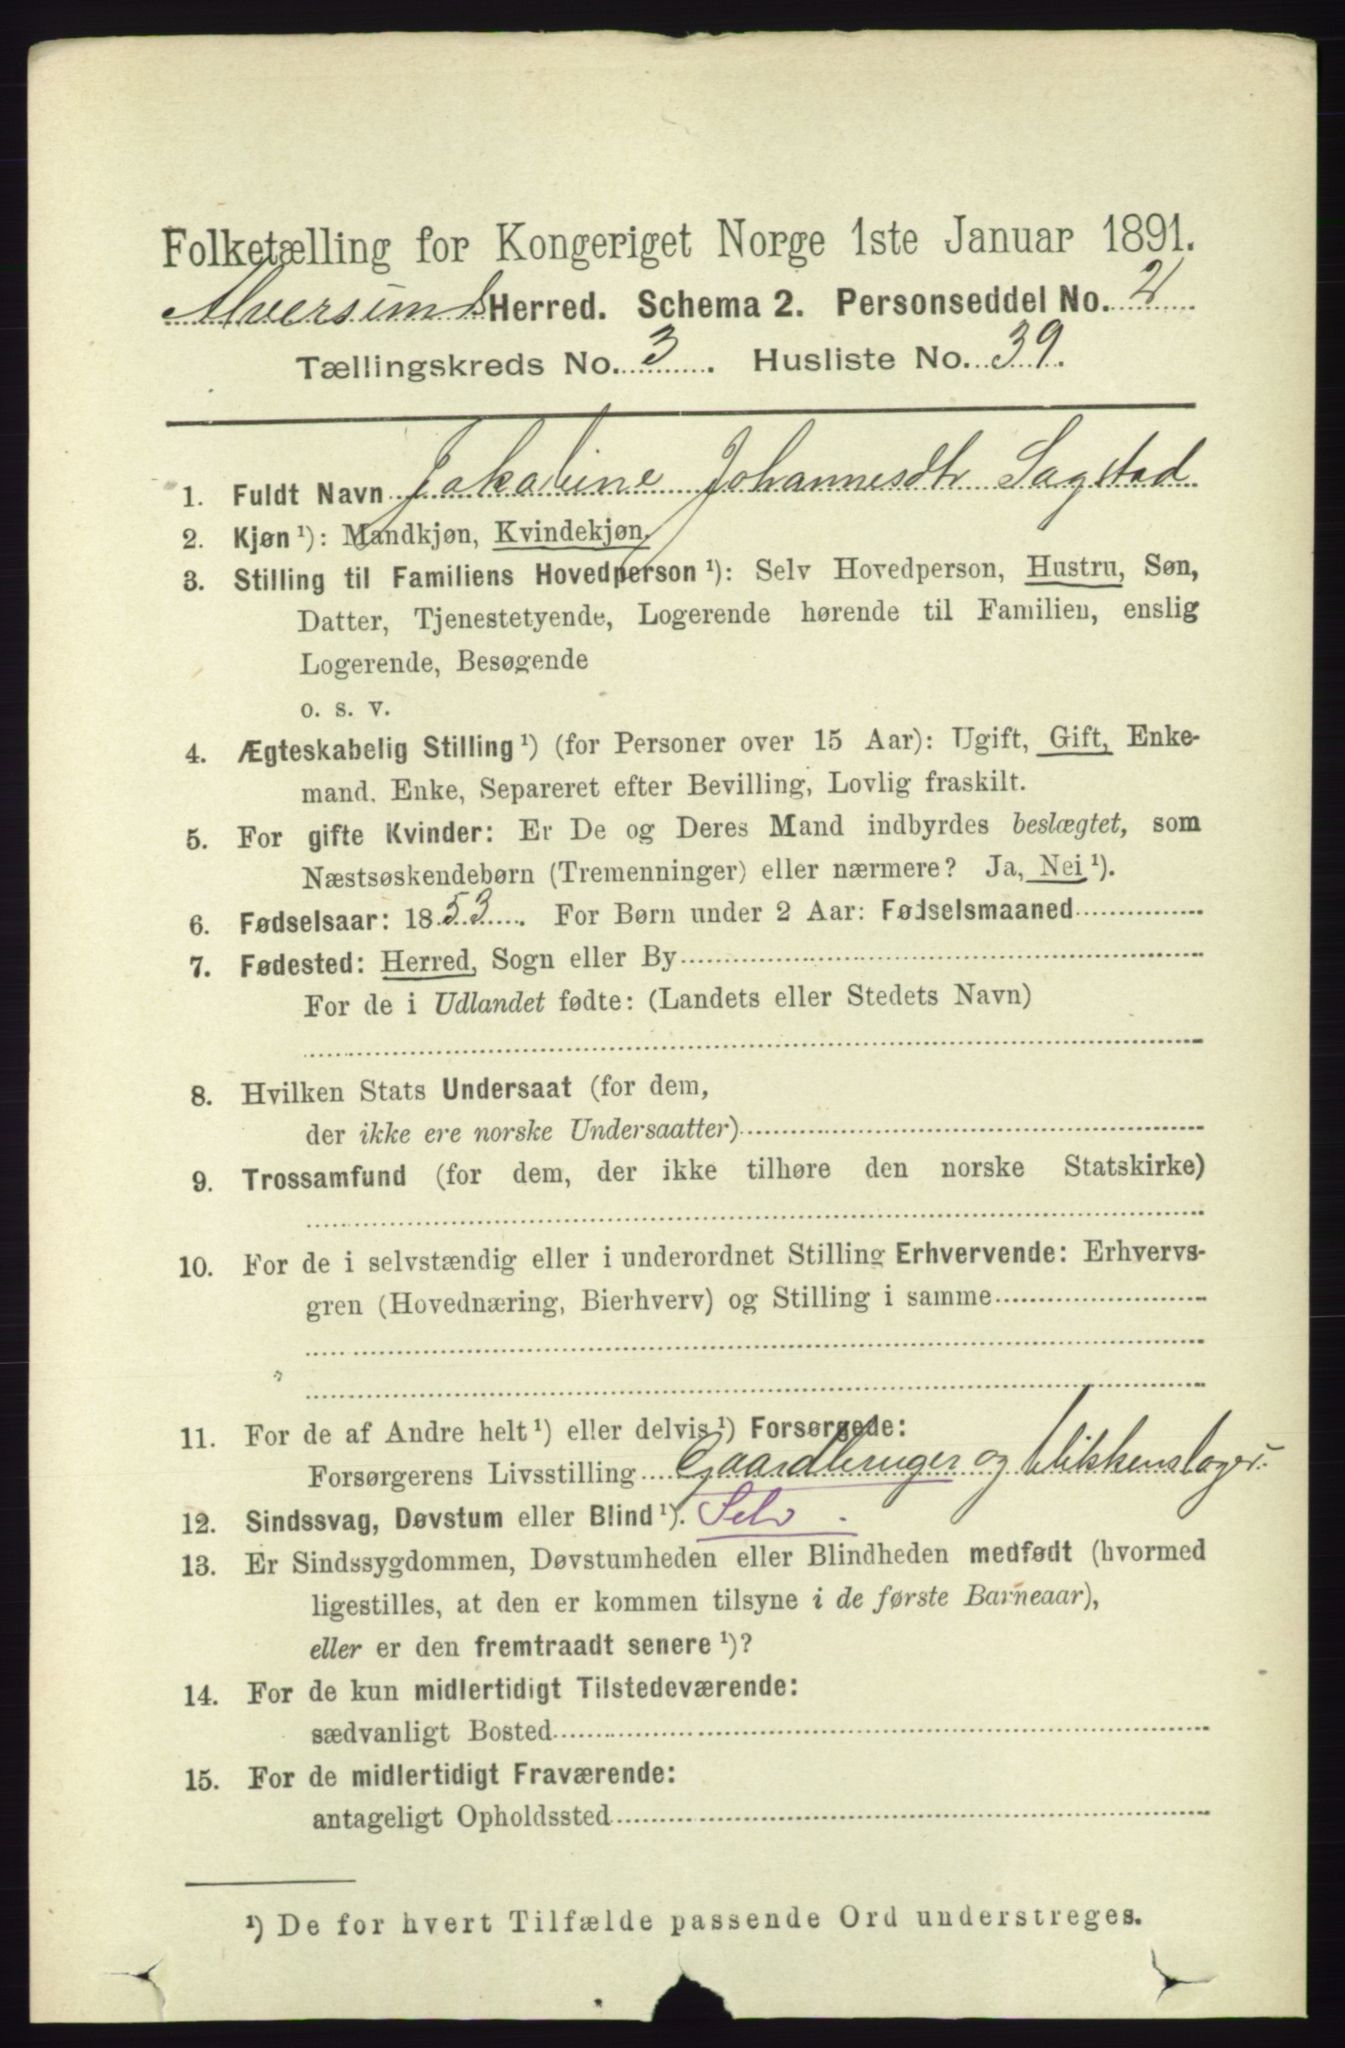 Folketælling for Kongeriget Norge 1ste Januar 1891.
Alversund Herred. Schema 2. Personseddel No. 2
Tællingskreds No. 3. Husliste No. 39.
1. Fuldt Navn Jakobine Johannesdtr Sagstad
2. Kjøn ¹): Mandkjøn, Kvindekjøn.
3. Stilling til Familiens Hovedperson ¹): Selv Hovedperson, Hustru, Søn,
Datter, Tjenestetyende, Logerende hørende til Familien, enslig
Logerende, Besøgende
o. s. v.
4. Ægteskabelig Stilling ¹) (for Personer over 15 Aar): Ugift, Gift, Enke-
mand, Enke, Separeret efter Bevilling, Lovlig fraskilt.
5. For gifte Kvinder: Er De og Deres Mand indbyrdes beslægtet, som
Næstsøskendebørn (Tremenninger) eller nærmere? Ja, Nei ¹).
6. Fødselsaar: 1853. For Børn under 2 Aar: Fødselsmaaned
7. Fødested: Herred, Sogn eller By
For de i Udlandet fødte: (Landets eller Stedets Navn)
8. Hvilken Stats Undersaat (for dem,
der ikke ere norske Undersaatter)
9. Trossamfund (for dem, der ikke tilhøre den norske Statskirke)
10. For de i selvstændig eller i underordnet Stilling Erhvervende: Erhvervs-
gren (Hovednæring, Bierhverv) og Stilling i samme
11. For de af Andre helt ¹) eller delvis ¹) Forsørgede:
Forsørgerens Livsstilling Gaardbruger og blikkenslager
12. Sindssvag, Døvstum eller Blind ¹). Selv.
13. Er Sindssygdommen, Døvstumheden eller Blindheden medfødt (hvormed
ligestilles, at den er kommen tilsyne i de første Barneaar),
eller er den fremtraadt senere ¹)?
14. For de kun midlertidigt Tilstedeværende:
sædvanligt Bosted
15. For de midlertidigt Fraværende:
antageligt Opholdssted
¹) De for hvert Tilfælde passende Ord understreges.